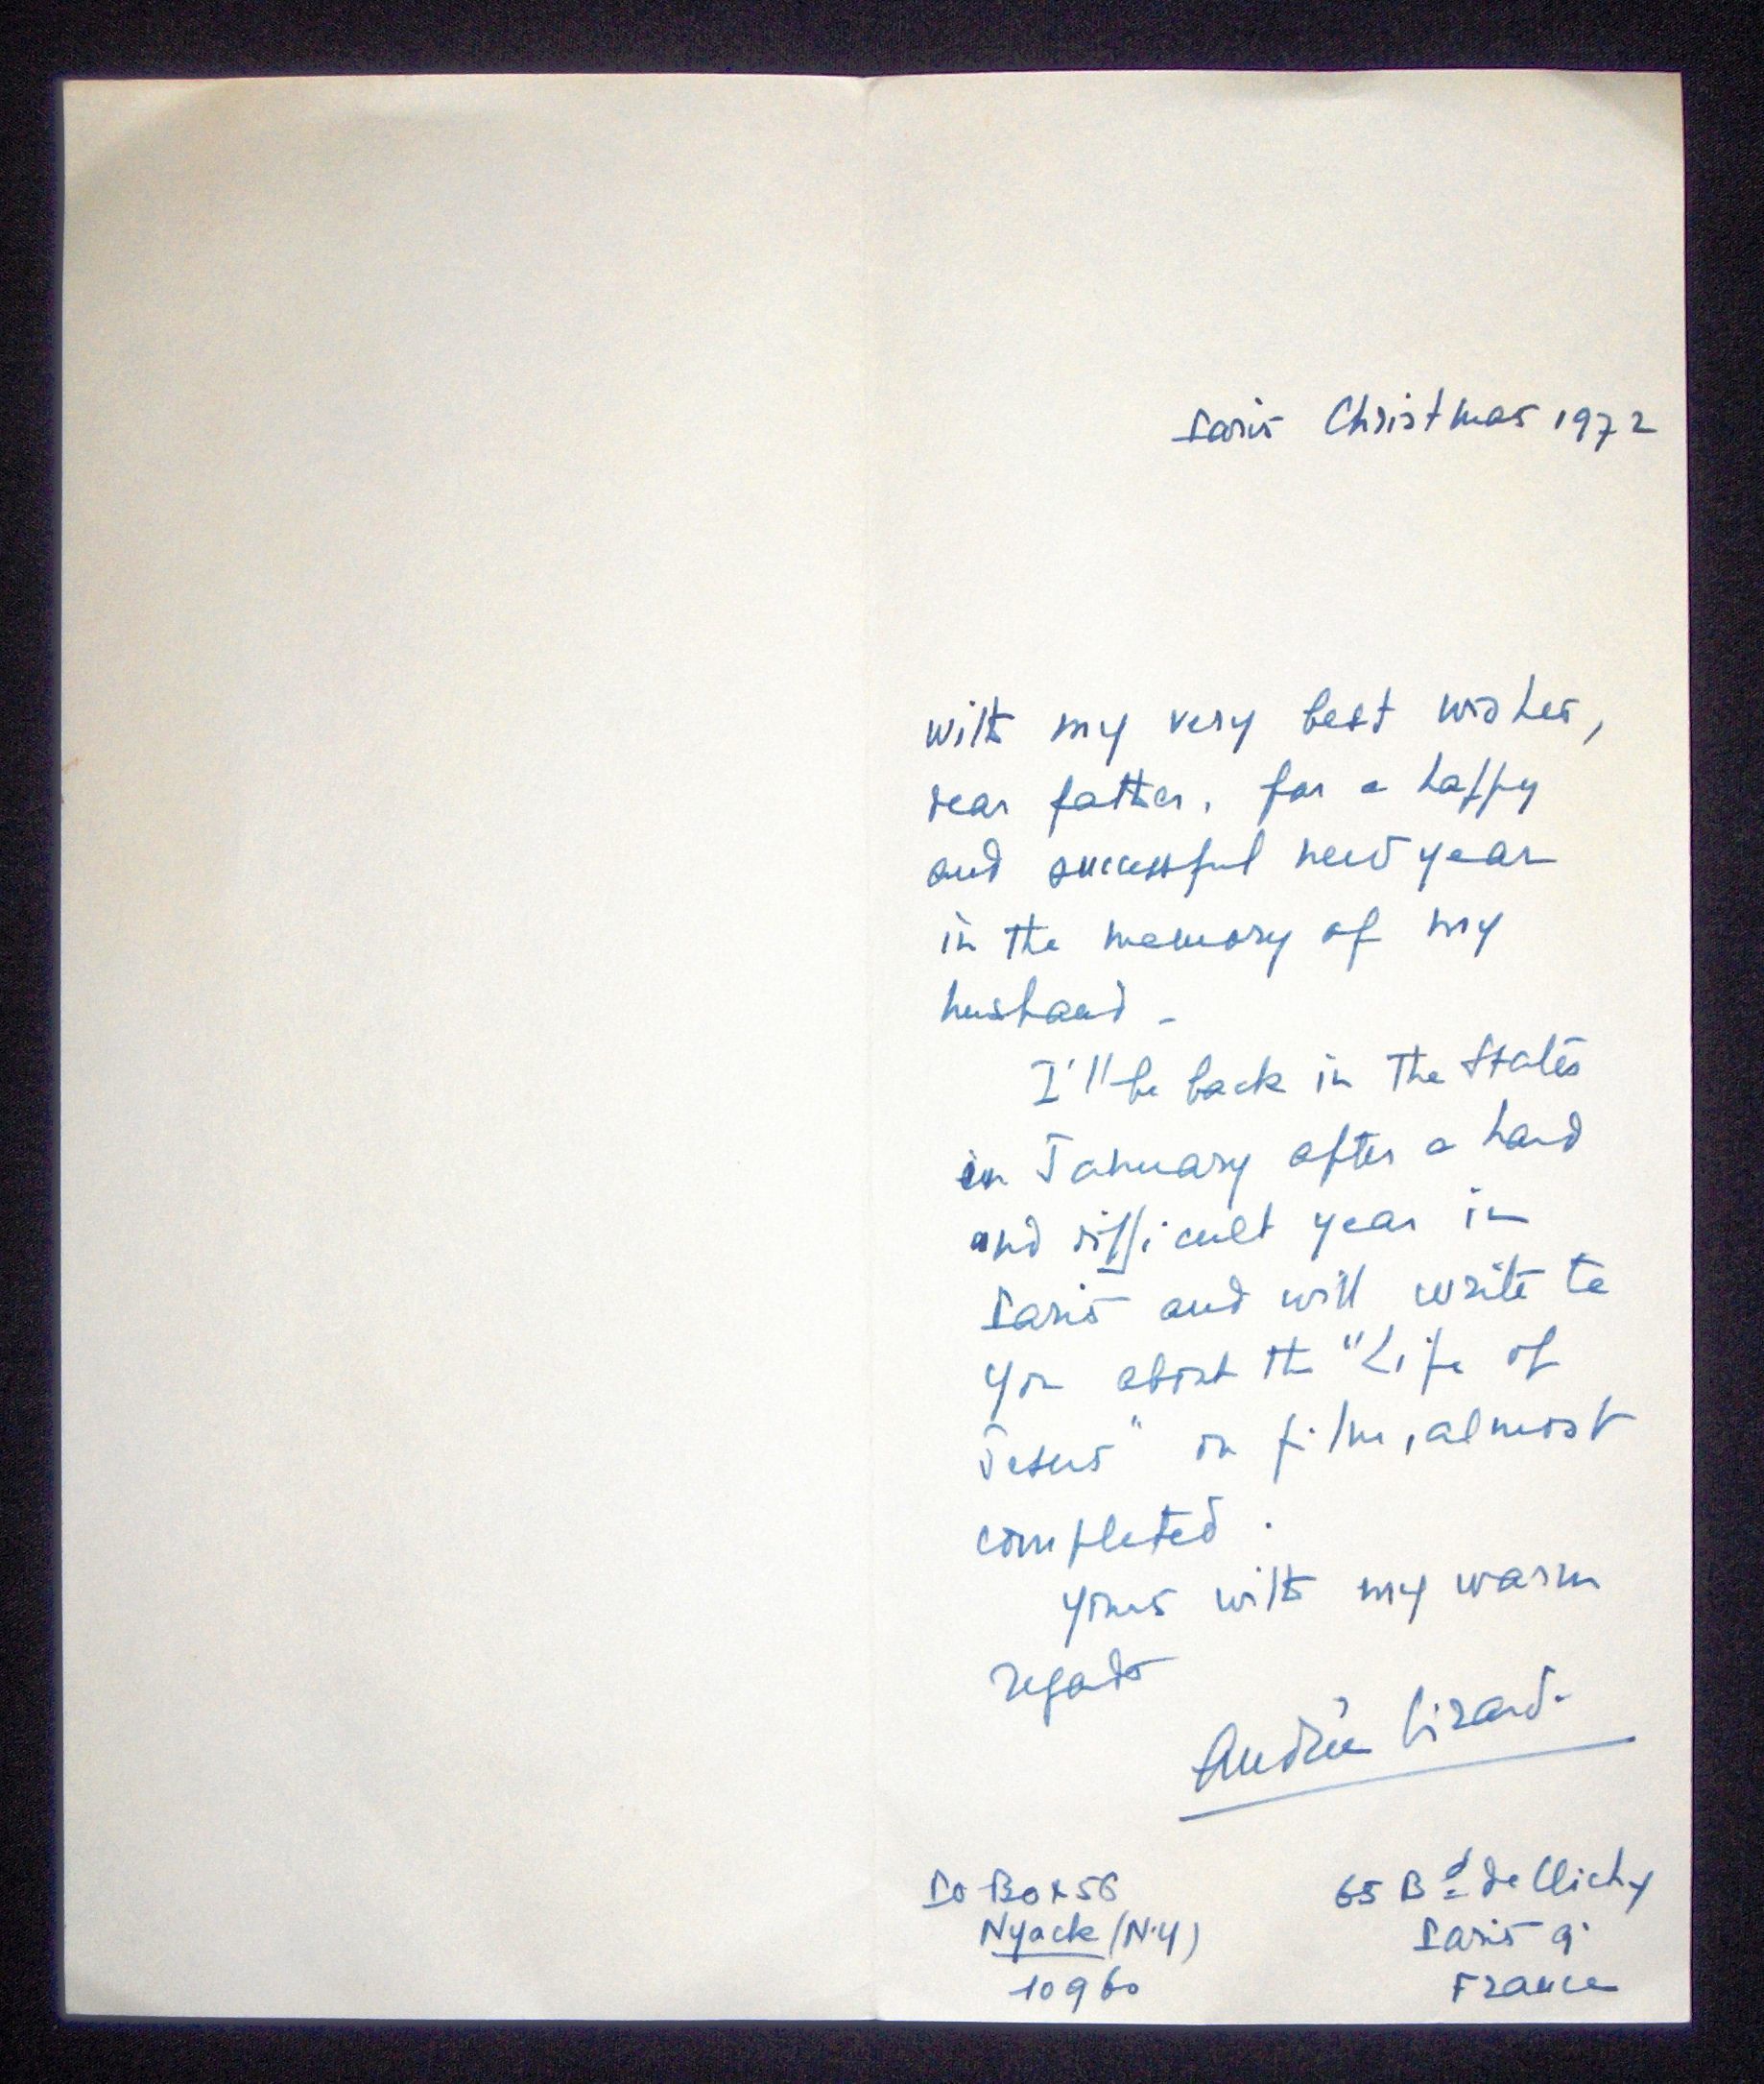 Paris Christmas 1972
with my very best wishes,
dear father, for a happy
and successful new year
in the memory of my
husband -
I'll be back in the States
in January after a hard
and difficult year in
Paris and will write to
you about the "Life of
Jesus" on film, almost
completed.
yours with my warm
regards
Andrée Girard.
PO Box 56
Nyack (N.Y)
10960
65 Bd de Clichy
Paris 9e
France